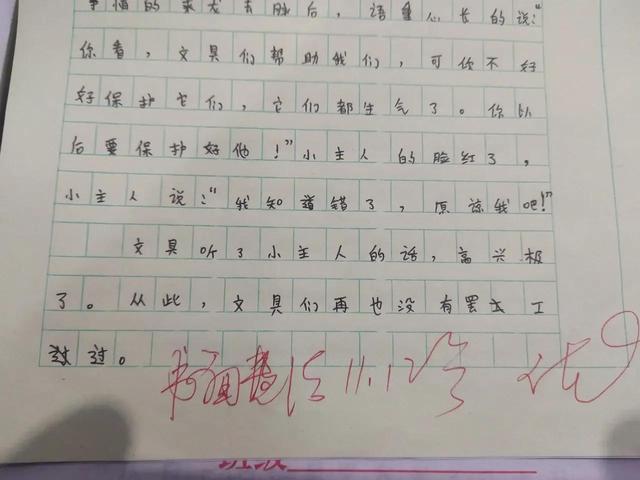 事情的来龙去脉后，语重心长的说：“
你看，文具们帮助我们，可你不好
好保护它们，它们都生气了。你以
后要保护好他！”小主人的脸红了，
小主人说：“我知道错了，原谅我吧！”
文具听了小主人的话，高兴极
了。从此，文具们再也没有罢工
过。
11.12
优
班级